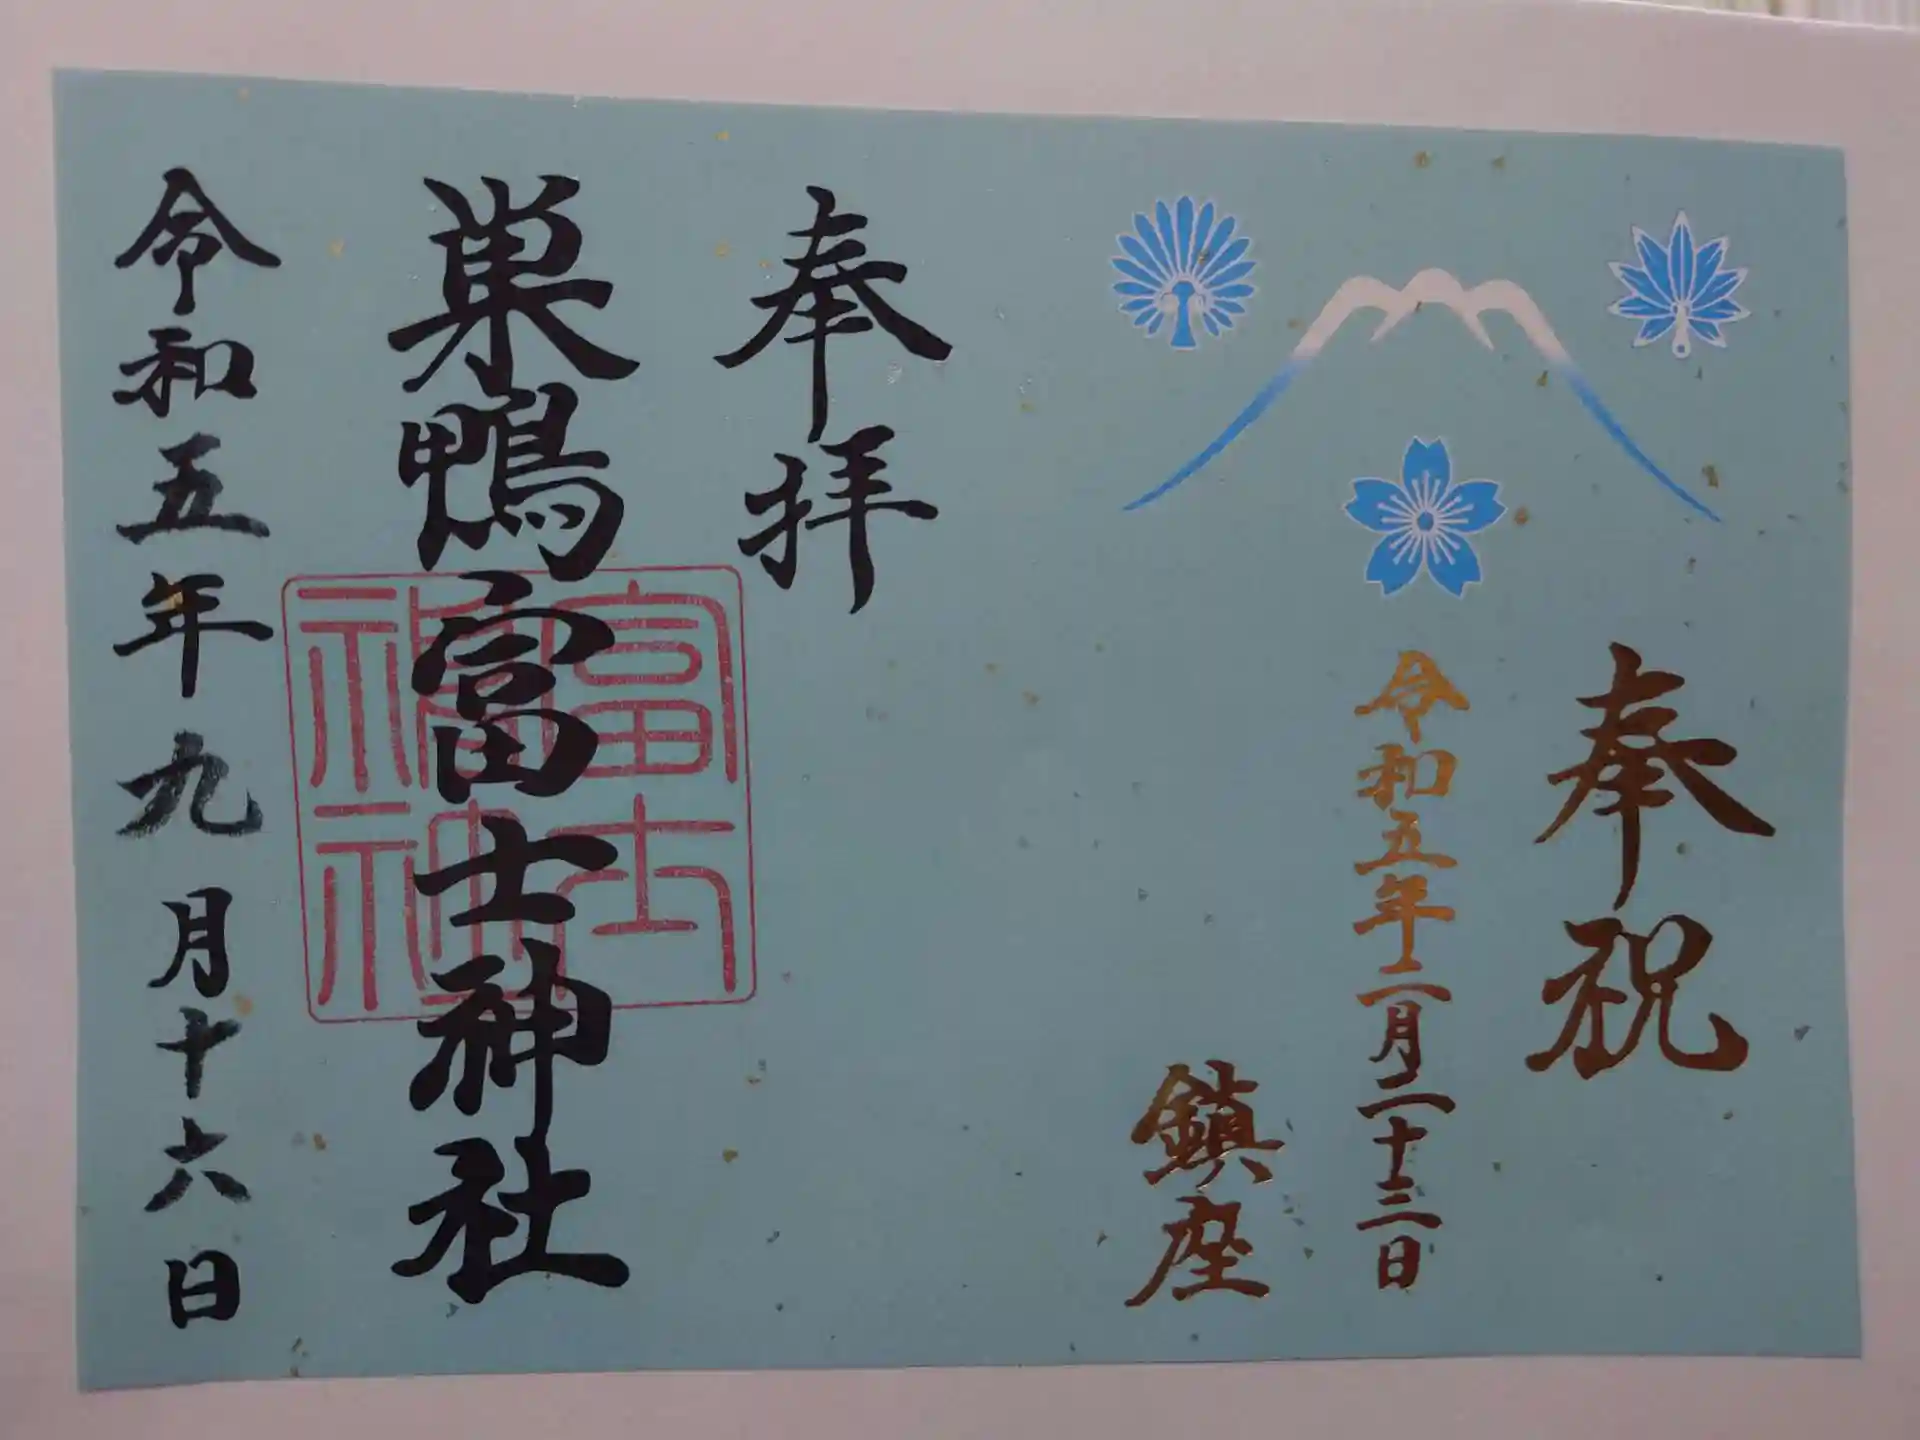 奉祝
令和五年二月二十三日
鎮座
奉拝
巣鴨富士神社
令和五年九月十六日
富士